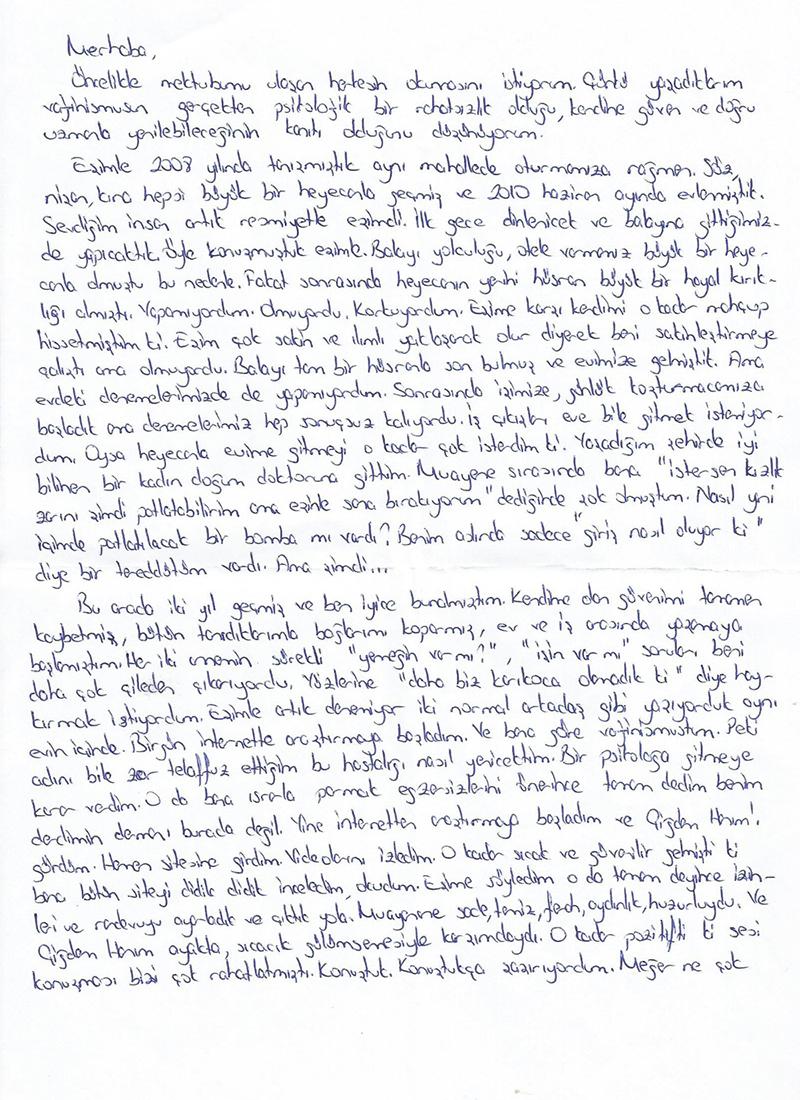 Merhaba,
Öncelikle mektubumu ulaşan herkesin okumasını istiyorum. Çünkü yaşadıklarım
vajinismusun gerçekten psikolojik bir rahatsızlık olduğu, kendine güven ve doğru
uzmanla yenilebileceğinin kanıtı olduğunu düşünüyorum.
Eşimle 2008 yılında tanışmıştık aynı mahallede oturmamıza rağmen. Söz,
nişan, kına hepsi büyük bir heyecanla geçmiş ve 2010 haziran ayında evlenmiştik.
Sevdiğim insan artık resmiyette eşimdi. İlk gece dinlenicek ve balayına gittiğimiz-
de yapıcaktık. Öyle konuşmuştuk eşimle. Balayı yolculuğu, otele varmamız büyük bir heye-
canla olmuştu bu nedenle. Fakat sonrasında heyecanın yerini hüsran büyük bir hayal kırık-
lığı almıştı. Yapamıyordum. Olmuyordu. Korkuyordum. Eşime karşı kendimi o kadar mahçup
hissetmiştim ki. Eşim çok sakin ve ılımlı yaklaşarak olur diyerek beni sakinleştirmeye
çalıştı ama olmuyordu. Balayı tam bir hüsranla son bulmuş ve evimize gelmiştik. Ama
evdeki denemelerimizde de yapamıyordum. Sonrasında işimize, günlük koşturmacamıza
başladık ama denemelerimiz hep sonuçsuz kalıyordu. İş çıkışları eve bile gitmek istemiyor-
dum. Oysa heyecanla evime gitmeyi o kadar çok isterdim ki. Yaşadığım şehirde iyi
bilinen bir kadın doğum doktoruna gittim. Muayene sırasında bana "istersen kızlık
zarını şimdi patlatabilirim ama eşinle sana bırakıyorum" dediğinde şok olmuştum. Nasıl yni
içimde patlatılacak bir bomba mı vardı? Benim aslında sadece "giriş nasıl oluyor ki"
diye bir tereddütüm vardı. Ama şimdi...
Bu arada iki yıl geçmiş ve ben iyice bunalmıştım. Kendime olan güvenimi tamamen
kaybetmiş, bütün tanıdıklarımla bağlarımı koparmış, ev ve iş arasında yaşamaya
başlamıştım. Her iki annemin sürekli "yemeğin var mı?", "işin var mı" soruları beni
daha çok çileden çıkarıyordu. Yüzlerine "daha biz karıkoca olmadık ki" diye hay-
kırmak istiyordum. Eşimle artık denemiyor iki normal arkadaş gibi yaşıyorduk aynı
evin içinde. Birgün internette araştırmaya başladım. Ve bana göre vajinismustum. Peki
adını bile zor telaffuz ettiğim bu hastalığı nasıl yenicektim. Bir psikoloğa gitmeye
karar verdim. O da bana ısrarla parmak egzersizlerini önerince tamam dedim benim
derdimin dermanı burada değil. Yine internetten araştırmaya başladım ve Çiğdem Hanım'ı
gördüm. Hemen sitesine girdim. Videolarını izledim. O kadar sıcak ve güvenilir gelmişti ki
bana bütün siteyi didik didik inceledim, okudum. Eşime söyledim o da tamam deyince izin-
leri ve randevuyu ayarladık ve çıktık yola. Muayenehane sade, temiz, ferah, aydınlık, huzurluydu. Ve
Çiğdem Hanım ayakta, sıcacık gülümsemesiyle karşımdaydı. O kadar pozitifti ki sesi
konuşması bizi çok rahatlatmıştı. Konuştuk. Konuştukça şaşırıyordum. Meğer ne çok